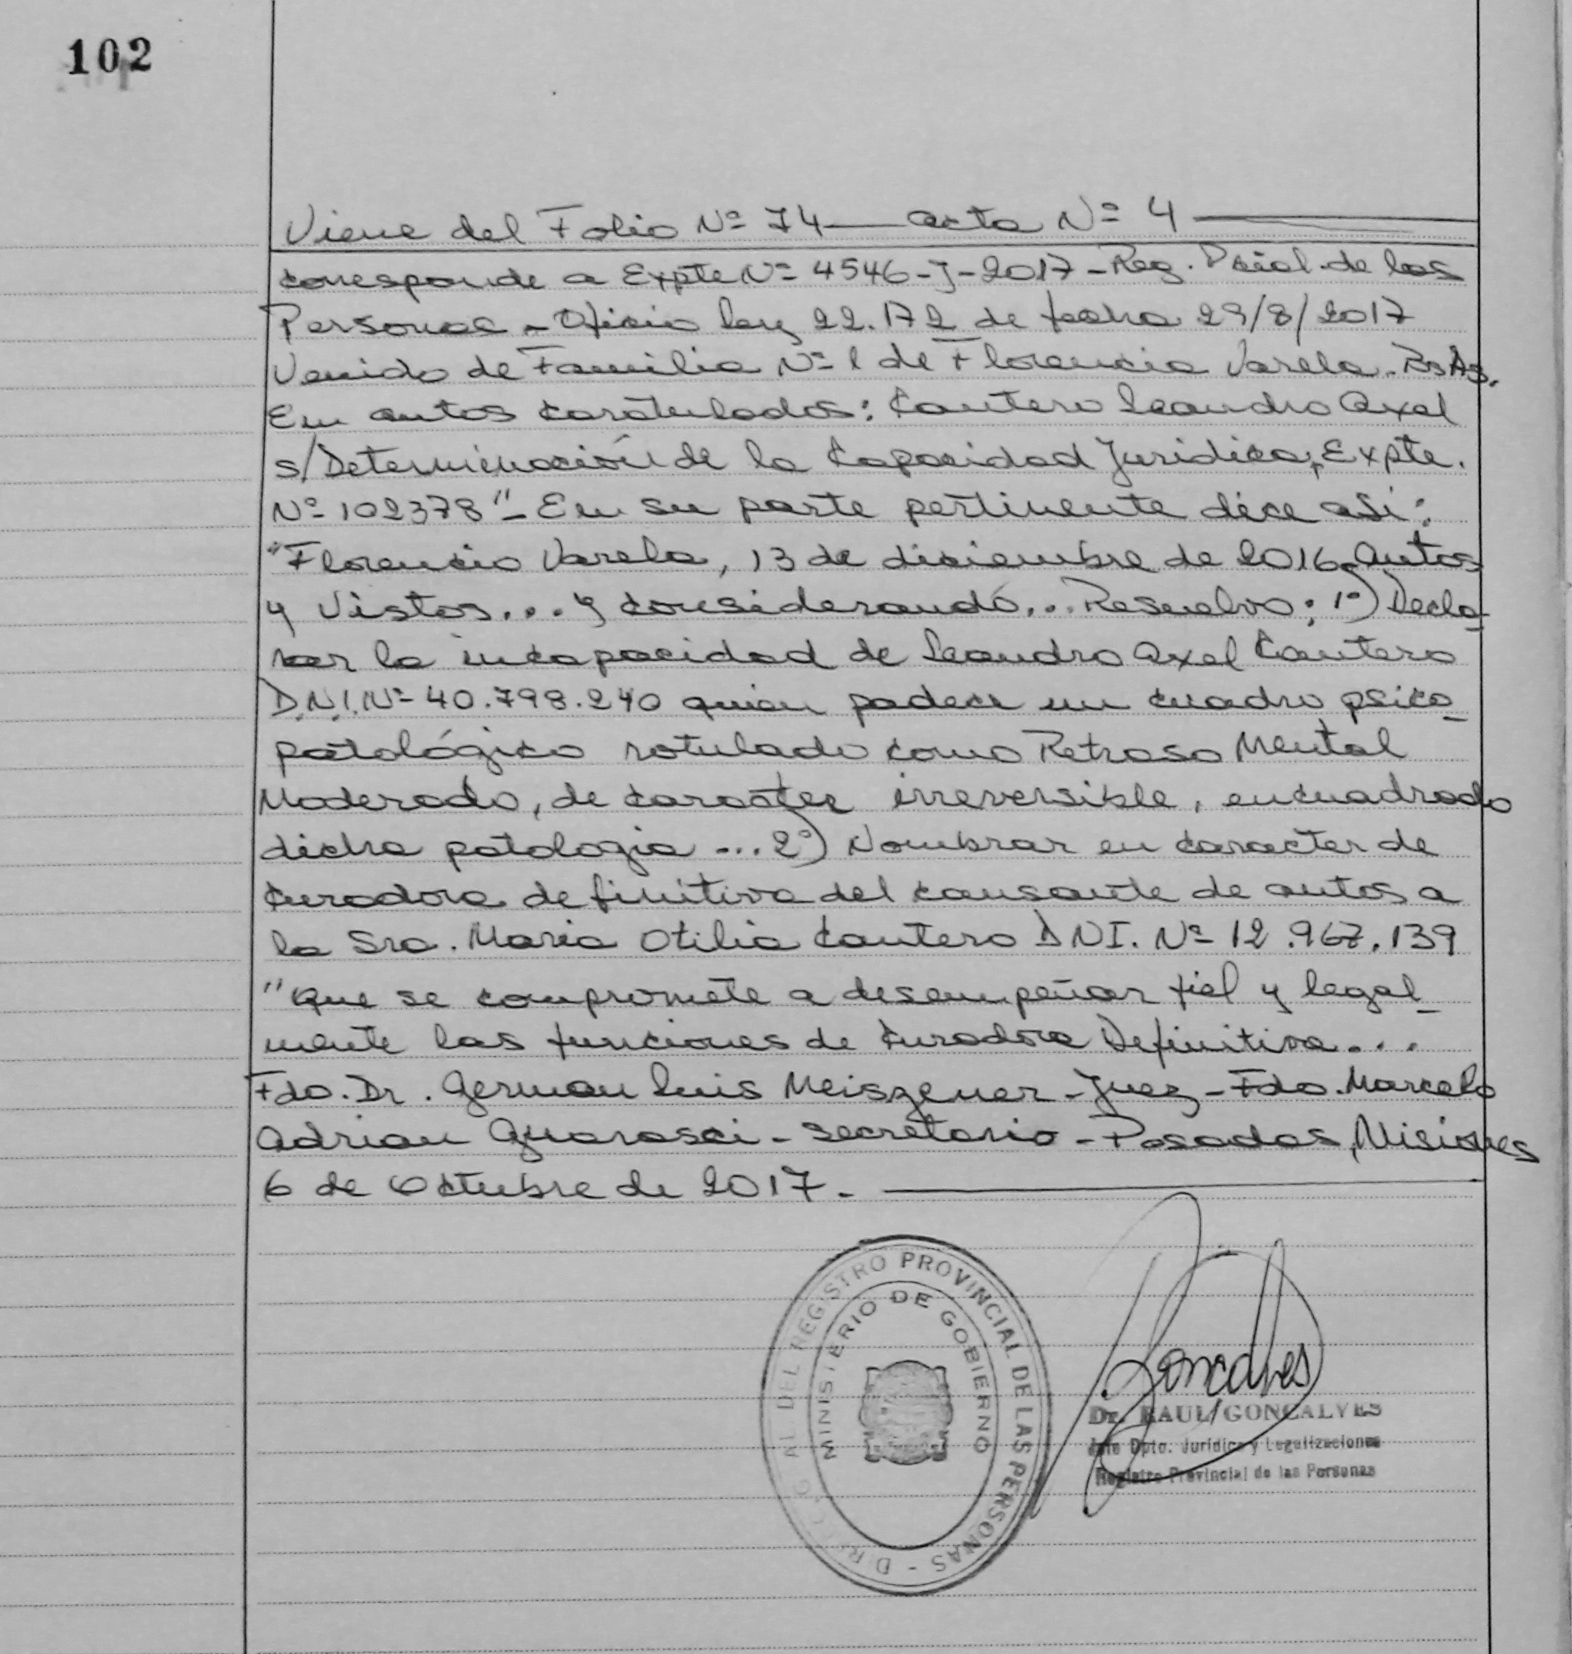 102
Viene del Folio Nº 74 — acta Nº 4 —
corresponde a Expte Nº 4546-J-2017-Reg. Pcial. de las
Personas - Oficio ley 22.172 de fecha 29/8/2017
Venido de Familia Nº 1 de Florencia Varela. Bs As.
En autos caratulados: Cantero Leandro Axel
s/Determinación de la Capacidad Juridica, Expte.
Nº 102378" - En su parte pertinente dice asi:
"Florencio Varela, 13 de diciembre de 2016. Autos
y Vistos... y considerando... Resuelvo: 1º) Decla-
rar la incapacidad de Leandro Axel Cantero
D.N.I. Nº 40.798.240 quien padece un cuadro psico-
patológico rotulado como Retraso Mental
Moderado, de caracter irreversible, encuadrado
dicha patologia ... 2º) Nombrar en caracter de
Curadora definitiva del causante de autos a
la Sra. Maria Otilia Cantero DNI. Nº 12.967.139
"Que se compromete a desempeñar fiel y legal-
mente las funciones de Curadora Definitiva...
Fdo. Dr. German Luis Meiszener - Juez - Fdo. Marcelo
Adrian Guarasci - Secretario - Posadas, Misiones
6 de Octubre de 2017. —
DIRECC. G AL DEL REGISTRO PROVINCIAL DE LAS PERSONAS -
MINISTERIO DE GOBIERNO
Goncalves
Dr. RAUL GONCALVES
Jefe Dpto. Jurídico y Legalizaciones
Registro Provincial de las Personas